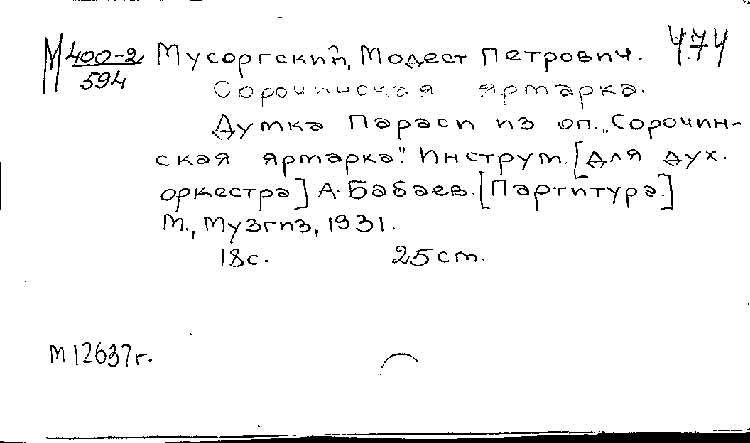 М 400-2/594 Мусоргский, Модест Петрович. 474
Сорочинская ярмарка.
Думка Параси из оп. „Сорочин-
ская ярмарка". Инструм. [для дух.
оркестра] А. Бабаев. [Партитура.]
М., Музгиз, 1931.
18с. 25 cm.
М 12637г.